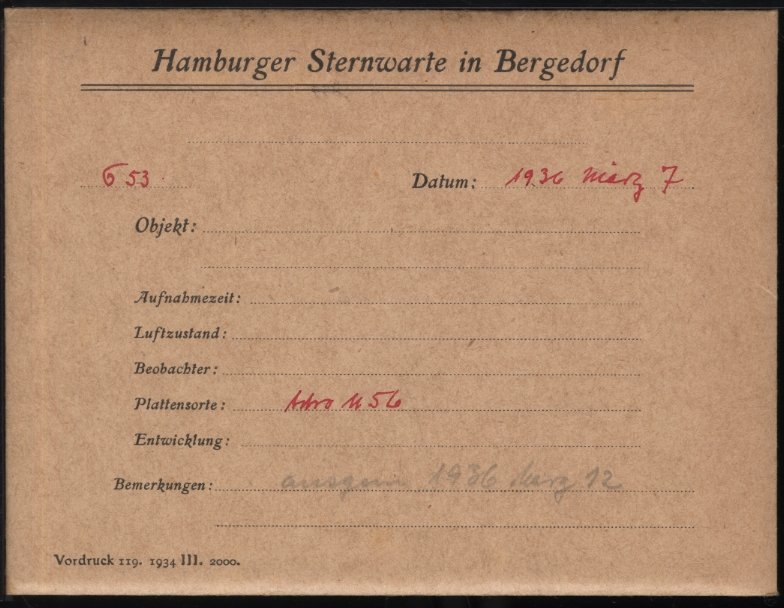 Hamburger Sternwarte in Bergedorf
G 53 Datum: 1936 März 7
Objekt:
Aufnahmezeit:
Luftzustand:
Beobachter:
Plattensorte: 56
Entwicklung:
Bemerkungen: 1936 März 12
Vordruck 119. 1934 III. 2000.